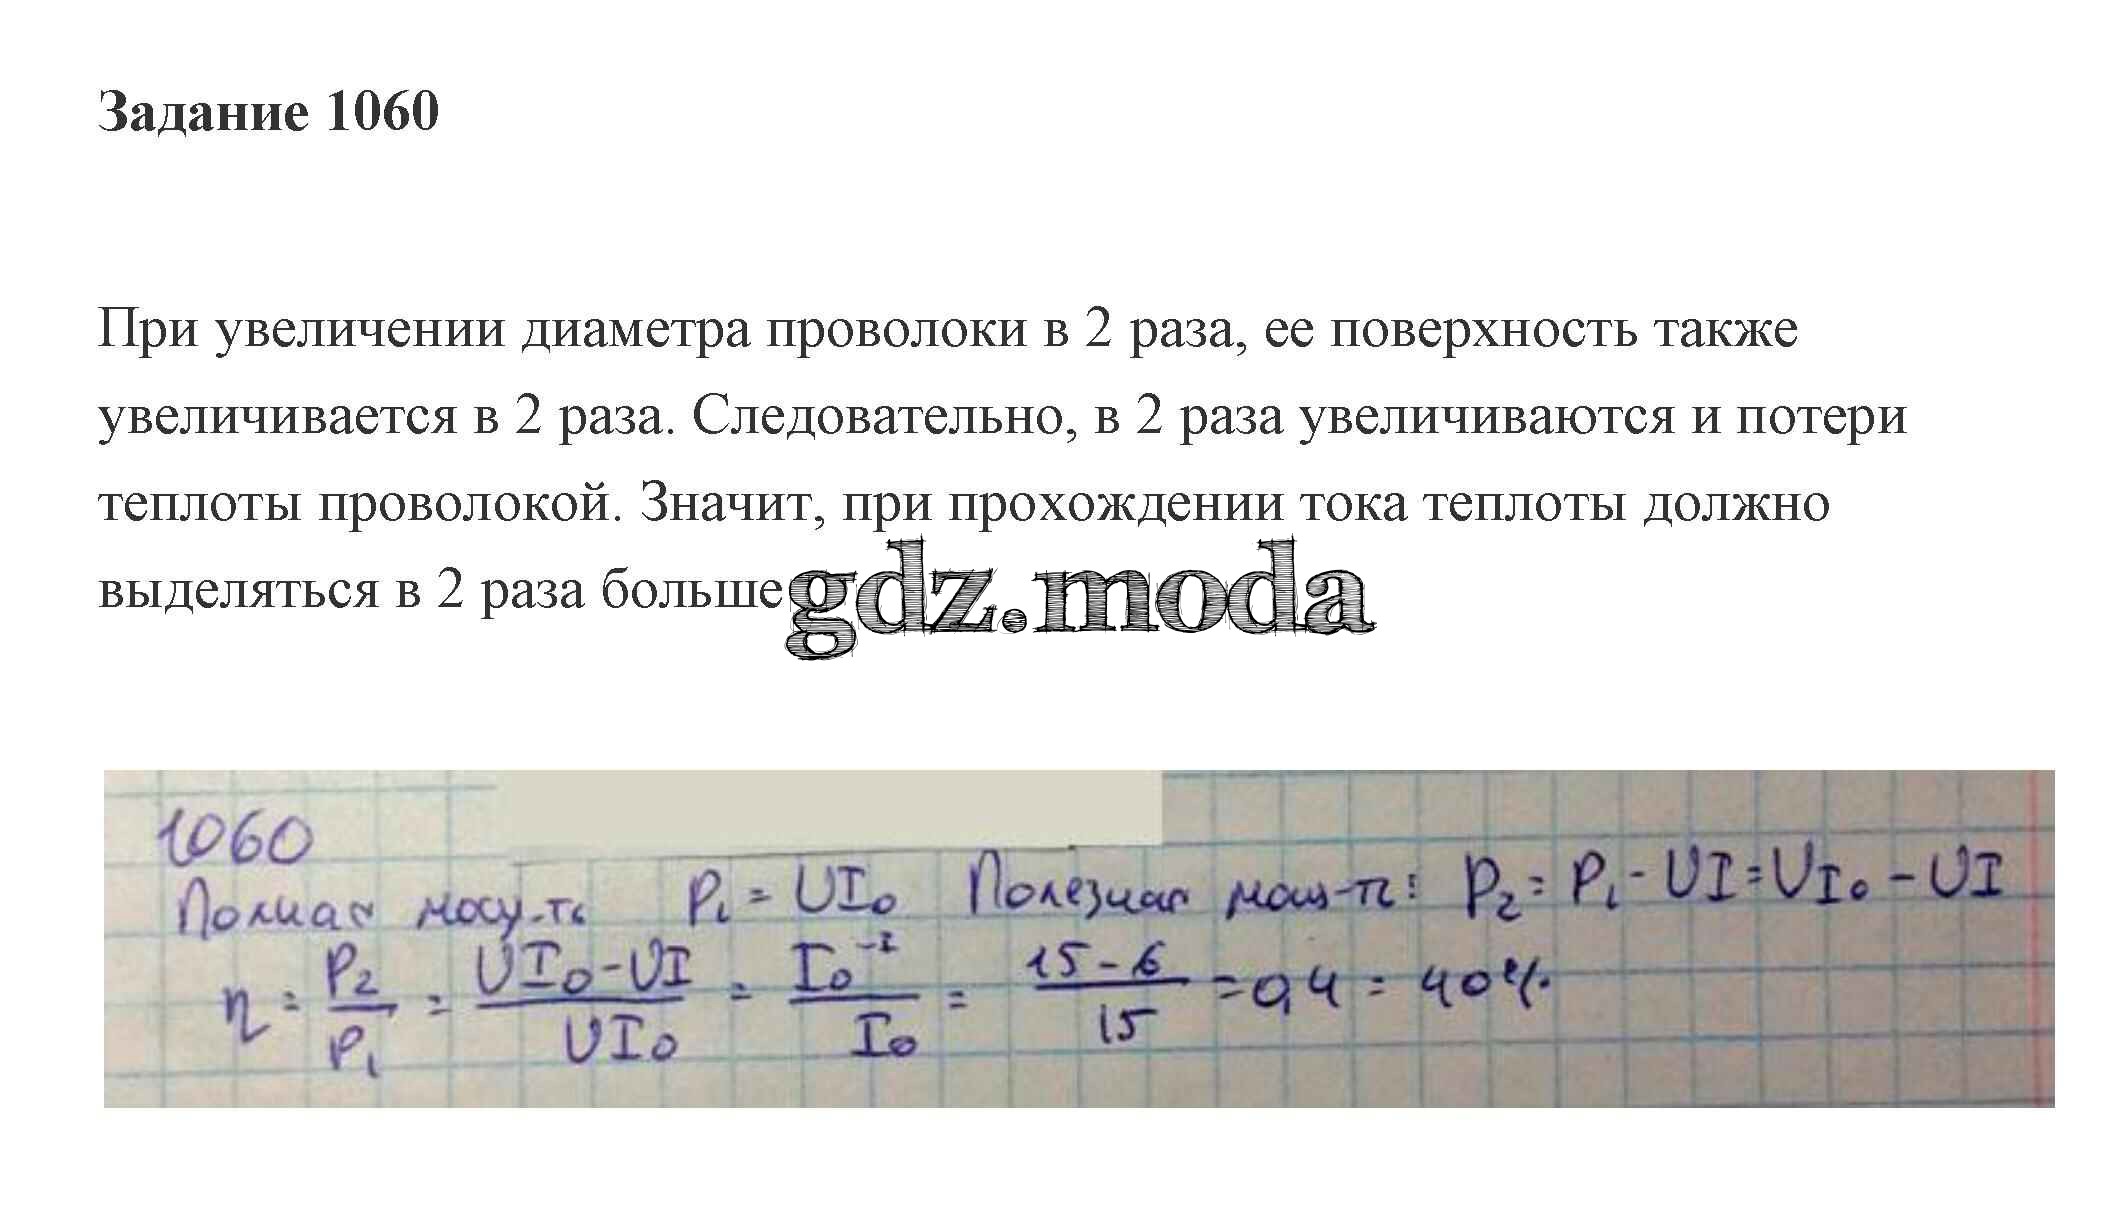 Задание 1060
При увеличении диаметра проволоки в 2 раза, ее поверхность также
увеличивается в 2 раза. Следовательно, в 2 раза увеличиваются и потери
теплоты проволокой. Значит, при прохождении тока теплоты должно
выделяться в 2 раза больше
gdz.moda
1060
Полная мощ-ть P₁ = UI₀ Полезная мощ-ть: P₂ = P₁ - UI = UI₀ - UI
η = P₂/P₁ = (UI₀ - UI)/UI₀ = (I₀ - I)/I₀ = (15 - 6)/15 = 0,4 = 40%